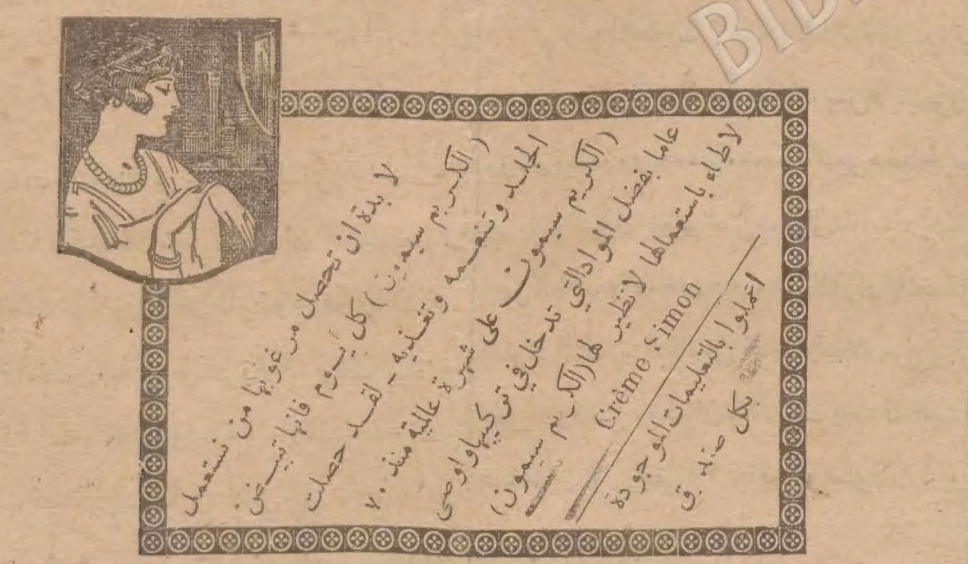 لا بدة ان تحصل مرغوبها من تستعمل
(الكريم سيمون) كل يوم فانها تبيض
الجلد وتنعمه وتغذيه - لقد حصلت
(الكريم سيمون على شهرة عالية منذ ٧٠
عاما بفضل المواد التي تدخل في تركيبها واوصى
لاطباء باستعمالها لانظير لها (الكريم سيمون)
Crème Simon
اعملوا بالتعليمات الموجودة
بكل صندوق